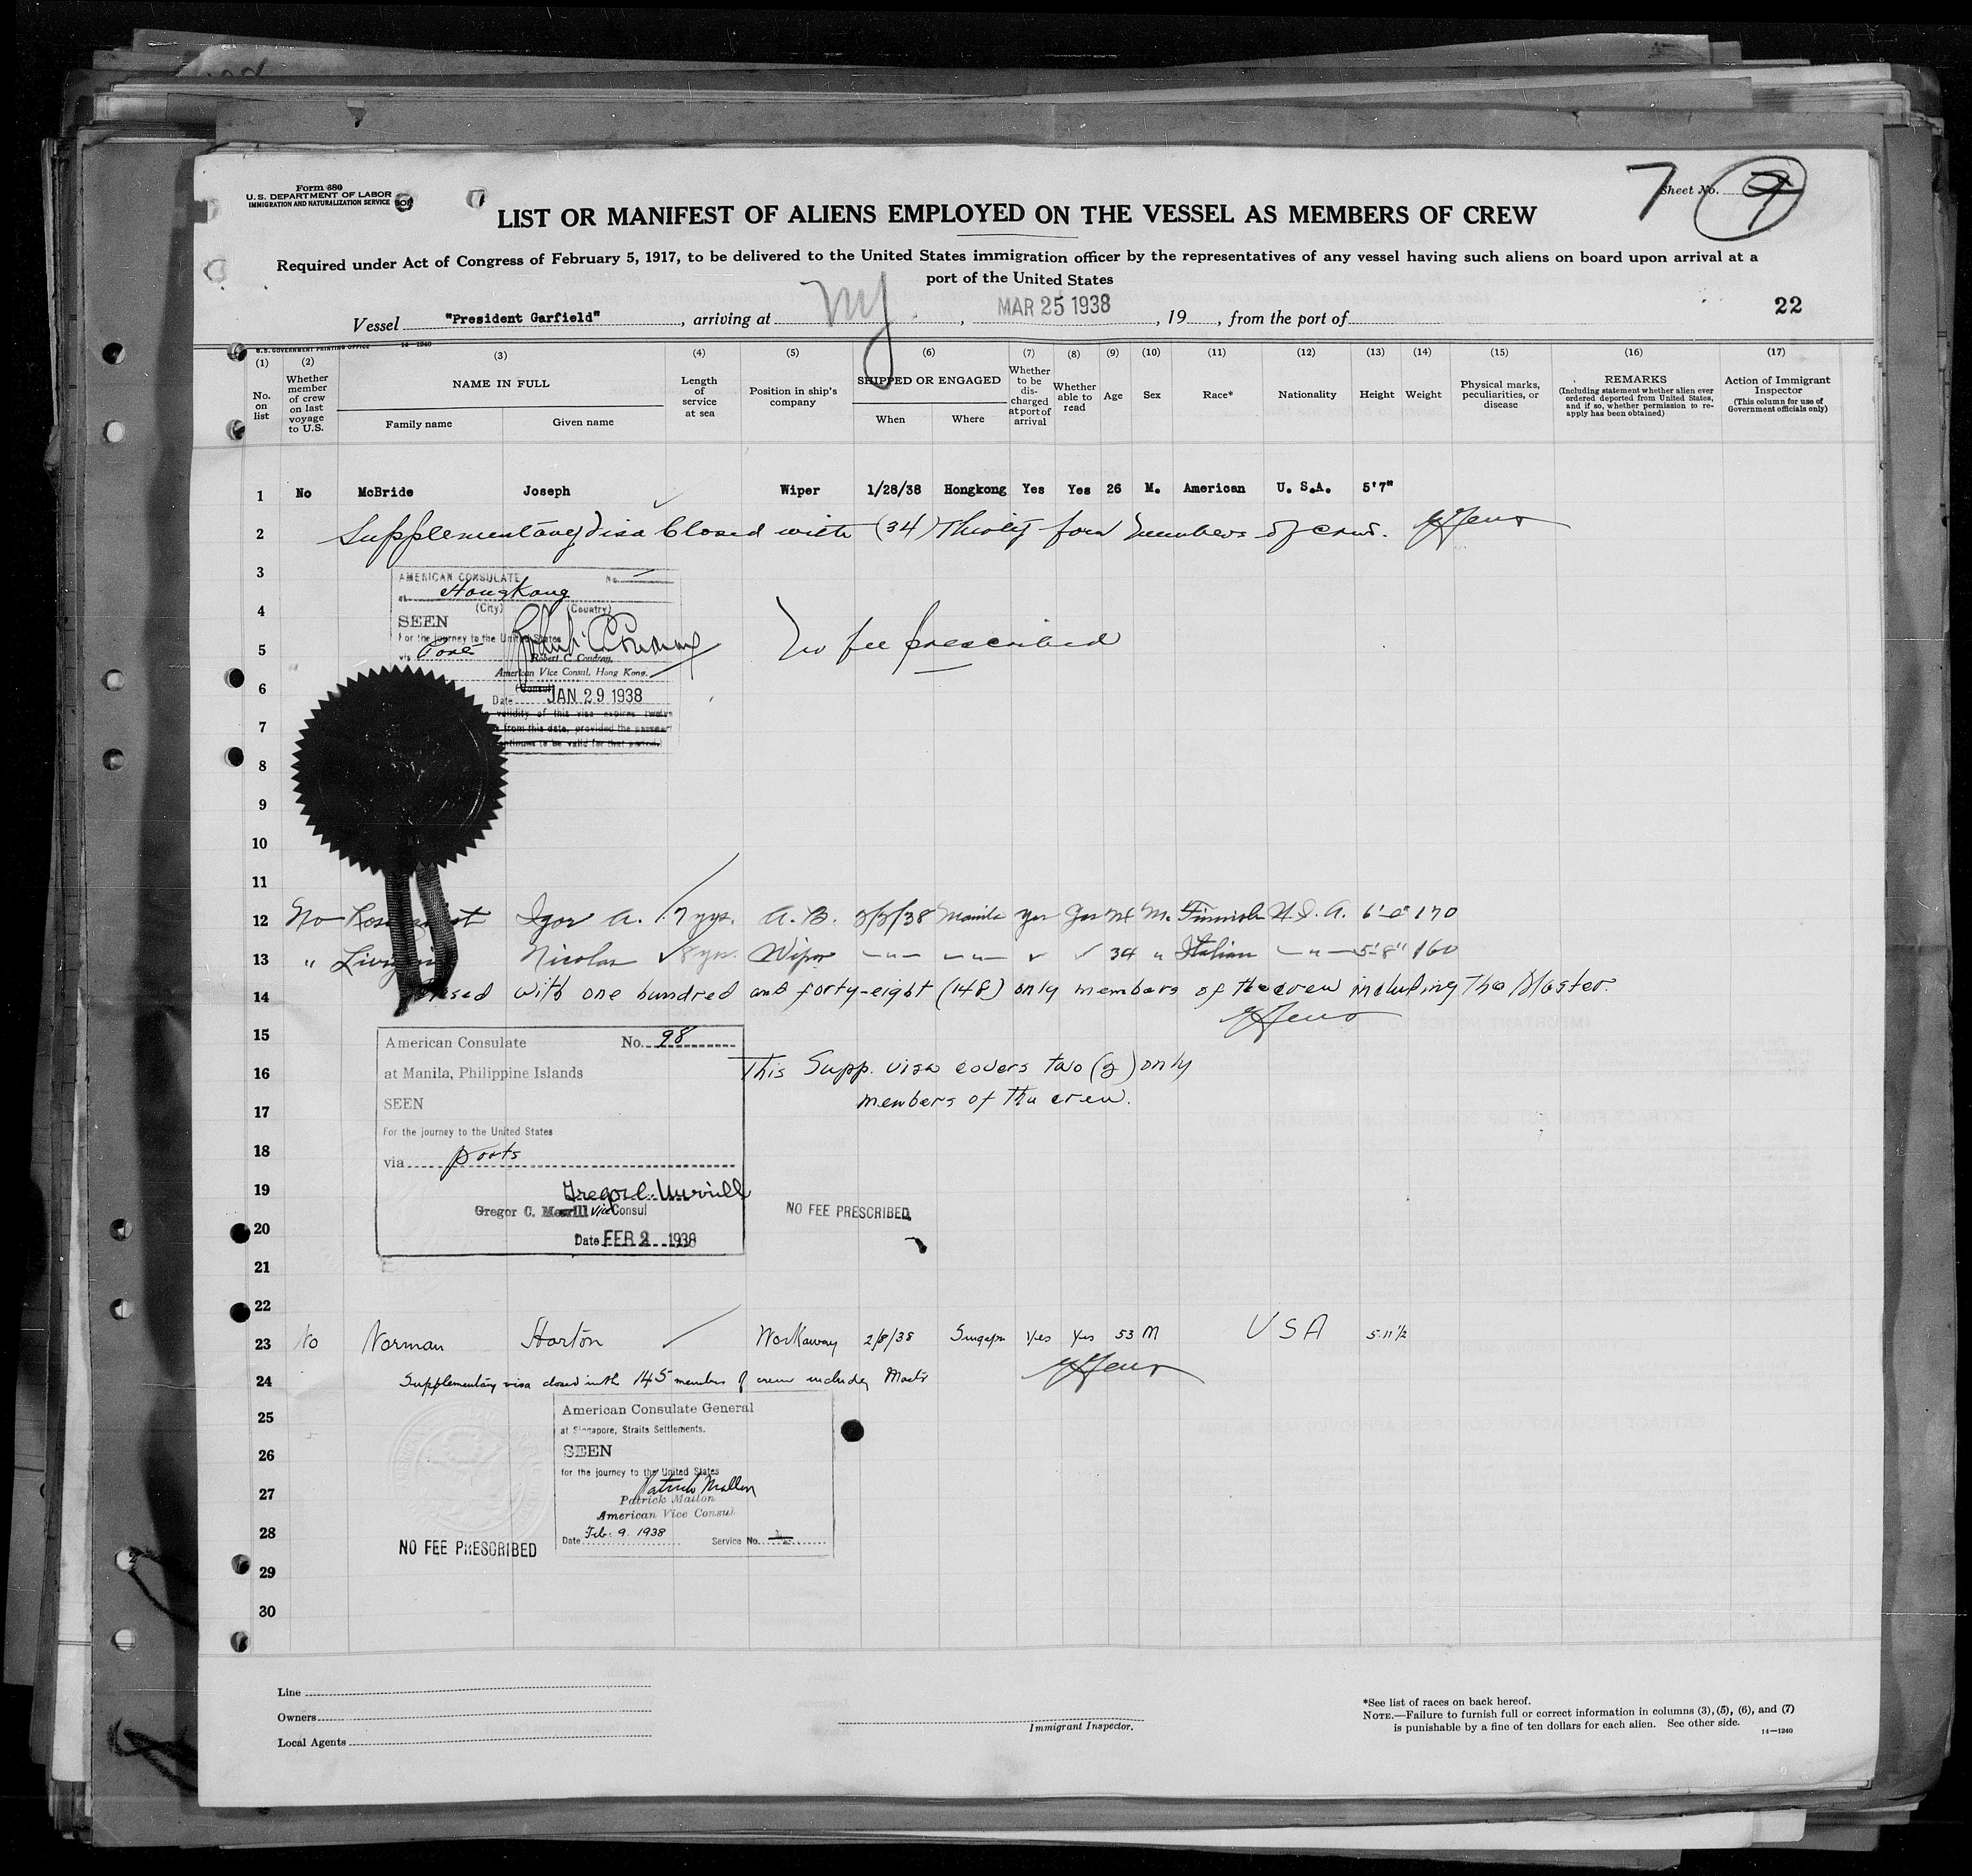 Form 680
U.S. DEPARTMENT OF LABOR
IMMIGRATION AND NATURALIZATION SERVICE
7 Sheet No. 9
LIST OR MANIFEST OF ALIENS EMPLOYED ON THE VESSEL AS MEMBERS OF CREW
Required under Act of Congress of February 5, 1917, to be delivered to the United States immigration officer by the representatives of any vessel having such aliens on board upon arrival at a
port of the United States
22
Vessel "President Garfield", arriving at NY, MAR 25 1938, 19, from the port of
U.S. GOVERNMENT PRINTING OFFICE 14—1240
(1) (2) (3) (4) (5) (6) (7) (8) (9) (10) (11) (12) (13) (14) (15) (16) (17)
No. on list
Whether member of crew on last voyage to U.S.
NAME IN FULL
Family name
Given name
Length of service at sea
Position in ship's company
SHIPPED OR ENGAGED
When
Where
Whether to be discharged at port of arrival
Whether able to read
Age
Sex
Race*
Nationality
Height
Weight
Physical marks, peculiarities, or disease
REMARKS
(Including statement whether alien ever ordered deported from United States, and if so, whether permission to reapply has been obtained)
Action of Immigrant Inspector
(This column for use of Government officials only)
1 No McBride Joseph Wiper 1/28/38 Hongkong Yes Yes 26 M. American U. S.A. 5'7"
2 Supplementary Visa Closed with (34) Thirty four members of crew.
3 AMERICAN CONSULATE No.
at HongKong
4 (City) (Country)
SEEN
For the journey to the United States
5 via
No fee prescribed
Robert C. Coudray,
American Vice Consul, Hong Kong.
6 (Consul)
Date JAN 29 1938
7 validity of this visa expires twelve
from this date, provided the passport
continues to be valid for that period.)
8
9
10
11
12 No Igor A. 17 yrs. A. B. 2/2/38 Manila Yes Yes M. Finnish U.S.A. 6'-0" 170
13 " Nicolas 8 yrs. Wiper —"— —"— ✓ ✓ 34 " Italian —"— 5'-8" 160
14 Closed with one hundred and forty-eight (148) only members of the crew including the Master.
15 American Consulate No. 98
16 at Manila, Philippine Islands
This Supp. visa covers two (2) only
17 SEEN
members of the crew.
For the journey to the United States
18 via ports
19 Gregor C. Merrill
Gregor C. Merrill Vice Consul
NO FEE PRESCRIBED
20 Date FEB 2 1938
21
22
23 No Norman Horton Workaway 2/8/38 Singapore Yes Yes 53 M USA 5-11½
24 Supplementary visa closed with 145 members of crew including Master
25 American Consulate General
at Singapore, Straits Settlements.
26 SEEN
for the journey to the United States
27 Patrick Mallon
Patrick Mallon
American Vice Consul
28 Date Feb. 9. 1938 Service No.
NO FEE PRESCRIBED
29
30
Line
Owners
Local Agents
Immigrant Inspector.
*See list of races on back hereof.
NOTE.—Failure to furnish full or correct information in columns (3), (5), (6), and (7)
is punishable by a fine of ten dollars for each alien. See other side.
14—1240